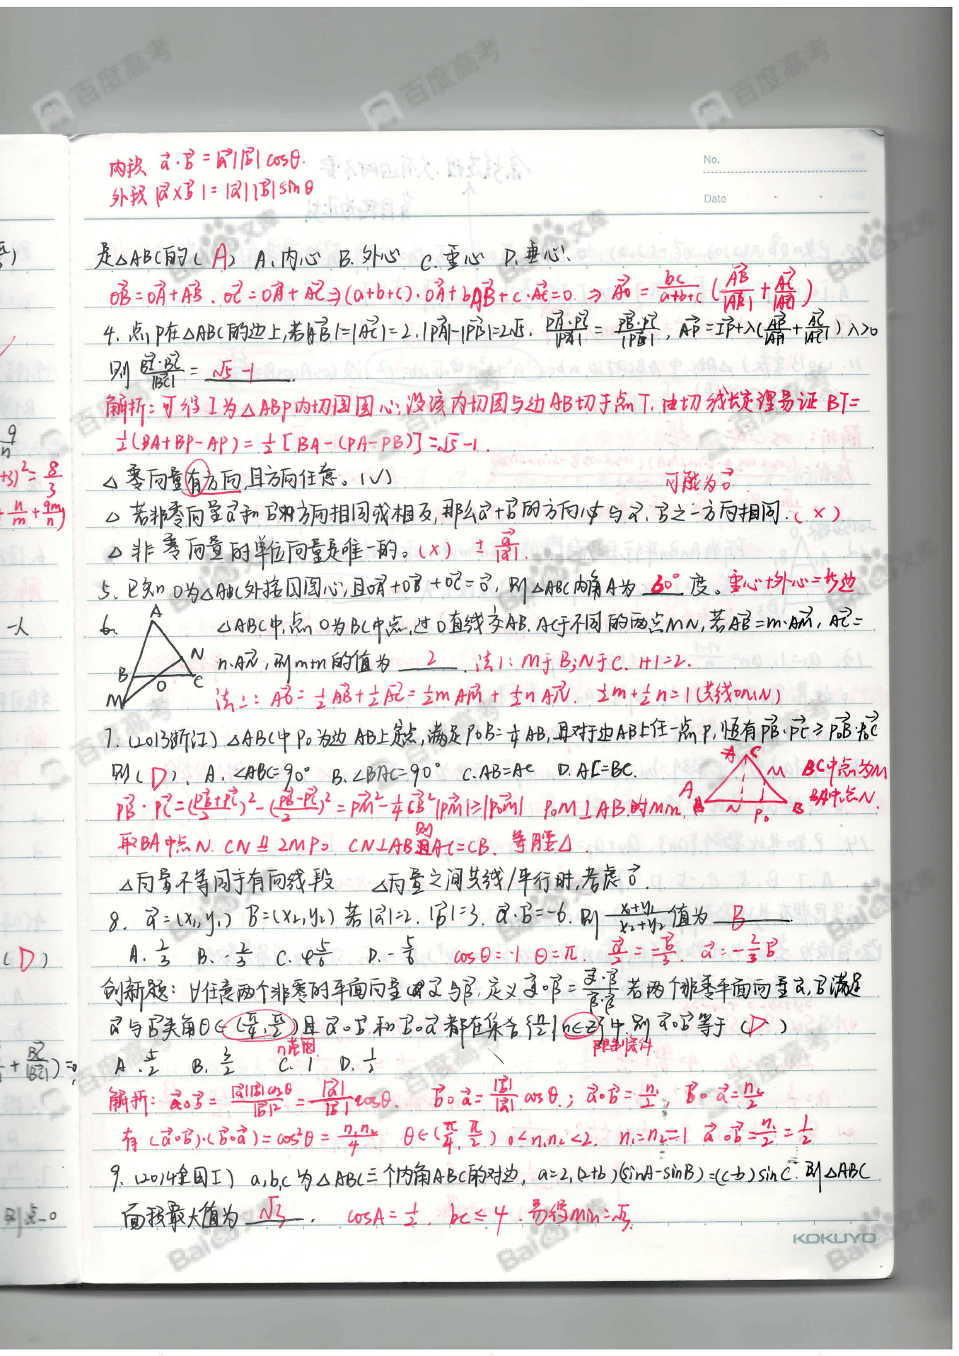 内积 a⃗·b⃗=|a⃗||b⃗|cosθ.
外积 |a⃗×b⃗|=|a⃗||b⃗|sinθ
No.
Date
是△ABC的( A ) A.内心 B.外心 C.重心 D.垂心.
OB⃗=OA⃗+AB⃗. OC⃗=OA⃗+AC⃗⇒(a+b+c)·OA⃗+bAB⃗+c·AC⃗=0. ⇒ AO⃗=bc/(a+b+c)(AB⃗/|AB⃗|+AC⃗/|AC⃗|)
4.点P在△ABC的边上,若|AB⃗|=|AC⃗|=2.|PA⃗|-|PB⃗|=2√5. PA⃗·PC⃗/|PA⃗|=PB⃗·PC⃗/|PB⃗|, AP⃗=IP⃗+λ(AP⃗/|AP⃗|+AC⃗/|AC⃗|) λ>0
则 BI⃗·BC⃗/|BC⃗| = √5-1
解析:可得I为△ABP内切圆圆心,设该内切圆与边AB切于点T.由切线长定理易证BT=
½(BA+BP-AP)=½[BA-(PA-PB)]=√5-1.
△ 零向量有方向,且方向任意。(√)
可能为0⃗
△ 若非零向量a⃗和b⃗的方向相同或相反,那么a⃗+b⃗的方向必与a⃗.b⃗之一方向相同.(×)
△ 非零向量的单位向量是唯一的。(×) ± a⃗/|a⃗|.
5.已知O为△ABC外接圆圆心,且OA⃗+OB⃗+OC⃗=0⃗, 则△ABC内角A为 60° 度。重心+外心=
6. △ABC中,点O为BC中点,过O直线交AB.AC于不同的两点M,N,若AB⃗=m·AM⃗, AC⃗=
n·AN⃗,则m+n的值为 2 . 法1:M于B;N于C. 1+1=2.
法二: AO⃗=½AB⃗+½AC⃗=½mAM⃗+½nAN⃗. ½m+½n=1(共线OMN)
A
B
M
O
N
C
7.(2013浙江)△ABC中P₀为边AB上定点,满足P₀B=¼AB,且对于边AB上任一点P,恒有PB⃗·PC⃗≥P₀B⃗·P₀C⃗
则( D ). A.∠ABC=90° B.∠BAC=90° C.AB=AC D.AC=BC.
PB⃗·PC⃗=((PB⃗+PC⃗)/2)²-((PB⃗-PC⃗)/2)²=PM⃗²-¼CB⃗² |PM⃗|≥|P₀M⃗| P₀M⊥AB.时min.
取BA中点N. CN∥2MP₀. CN⊥AB则AC=CB. 等腰△.
C
M
A
N
P₀
B
BC中点为M
BA中点N.
△向量不等同于有向线段 △向量之间共线/平行时,考虑0⃗.
8. a⃗=(x₁,y₁) b⃗=(x₂,y₂) 若|a⃗|=2. |b⃗|=3. a⃗·b⃗=-6.则 (x₁+y₁)/(x₂+y₂) 值为 B
A.2/3 B.-2/3 C.5/6 D.-5/6 cosθ=-1 θ=π. a⃗/2=-b⃗/3. a⃗=-2/3b⃗
创新题:对任意两个非零的平面向量α⃗与β⃗,定义α⃗∘β⃗=α⃗·β⃗/β⃗·β⃗ 若两个非零平面向量a⃗,b⃗满足
a⃗与b⃗夹角θ∈(π/4,π/2)且a⃗∘b⃗和b⃗∘a⃗都在集合{n/2|n∈Z}中.则a⃗∘b⃗等于( D )
n范围
限制条件
A.5/2 B.3/2 C.1 D.1/2
解析: a⃗∘b⃗=|a⃗||b⃗|cosθ/|b⃗|²=|a⃗|/|b⃗|cosθ. b⃗∘a⃗=|b⃗|/|a⃗|cosθ.; a⃗∘b⃗=n₁/2, b⃗∘a⃗=n₂/2
有(a⃗∘b⃗)·(b⃗∘a⃗)=cos²θ=n₁n₂/4 θ∈(π/4,π/2) 0<n₁n₂<2. n₁=n₂=1 a⃗∘b⃗=n₁/2=1/2
9.(2014全国Ⅰ) a,b,c为△ABC三个内角ABC的对边, a=2,(2+b)(sinA-sinB)=(c-b)sinC.则△ABC
面积最大值为 √3 . cosA=½. bc≤4.易得min=√3.
KOKUYO